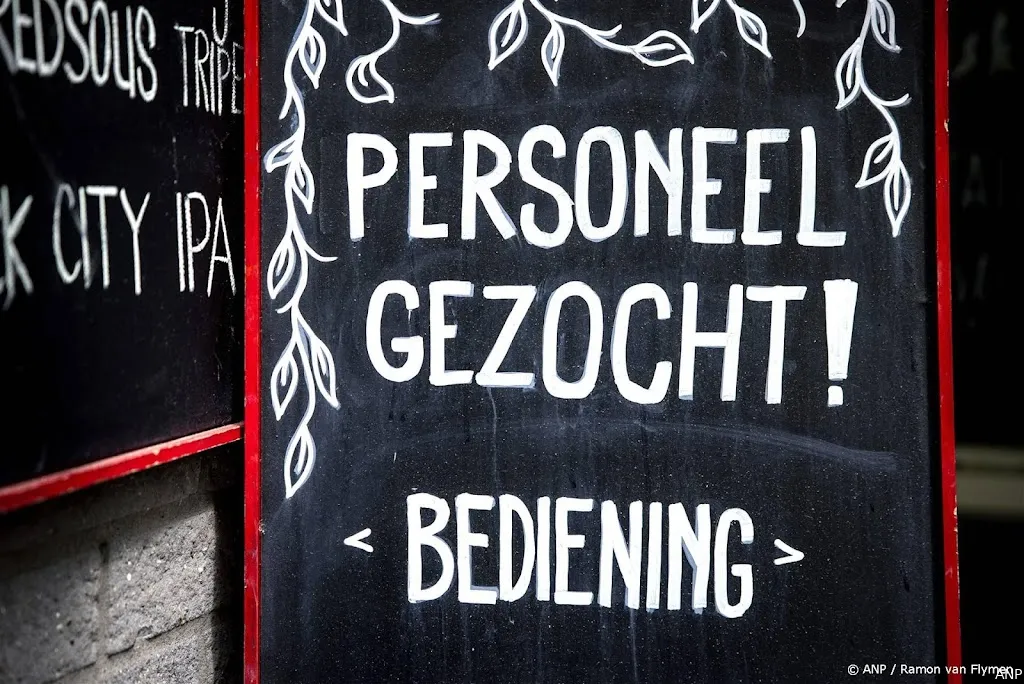 REDSOUS TRIPE
CK CITY IPA
PERSONEEL
GEZOCHT!
< BEDIENING >
© ANP / Ramon van Flymen
ANP